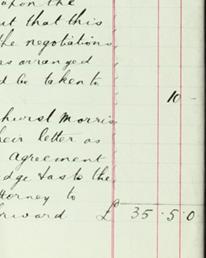 upon the
ut that this
the negotiations
as arranged
d be taken to
10 -
hurst Morris
heir letter as
agreement
dge as to the
ttorney to
orward £ 35 . 5 . 0